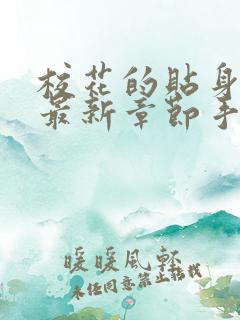 校花的貼身
最新章節手
暖暖風軒
未经同意禁止转载